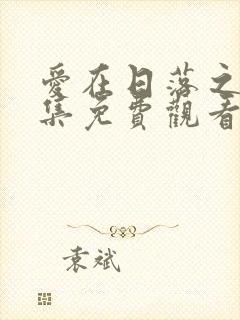 愛在日落之
集免費觀看
袁斌